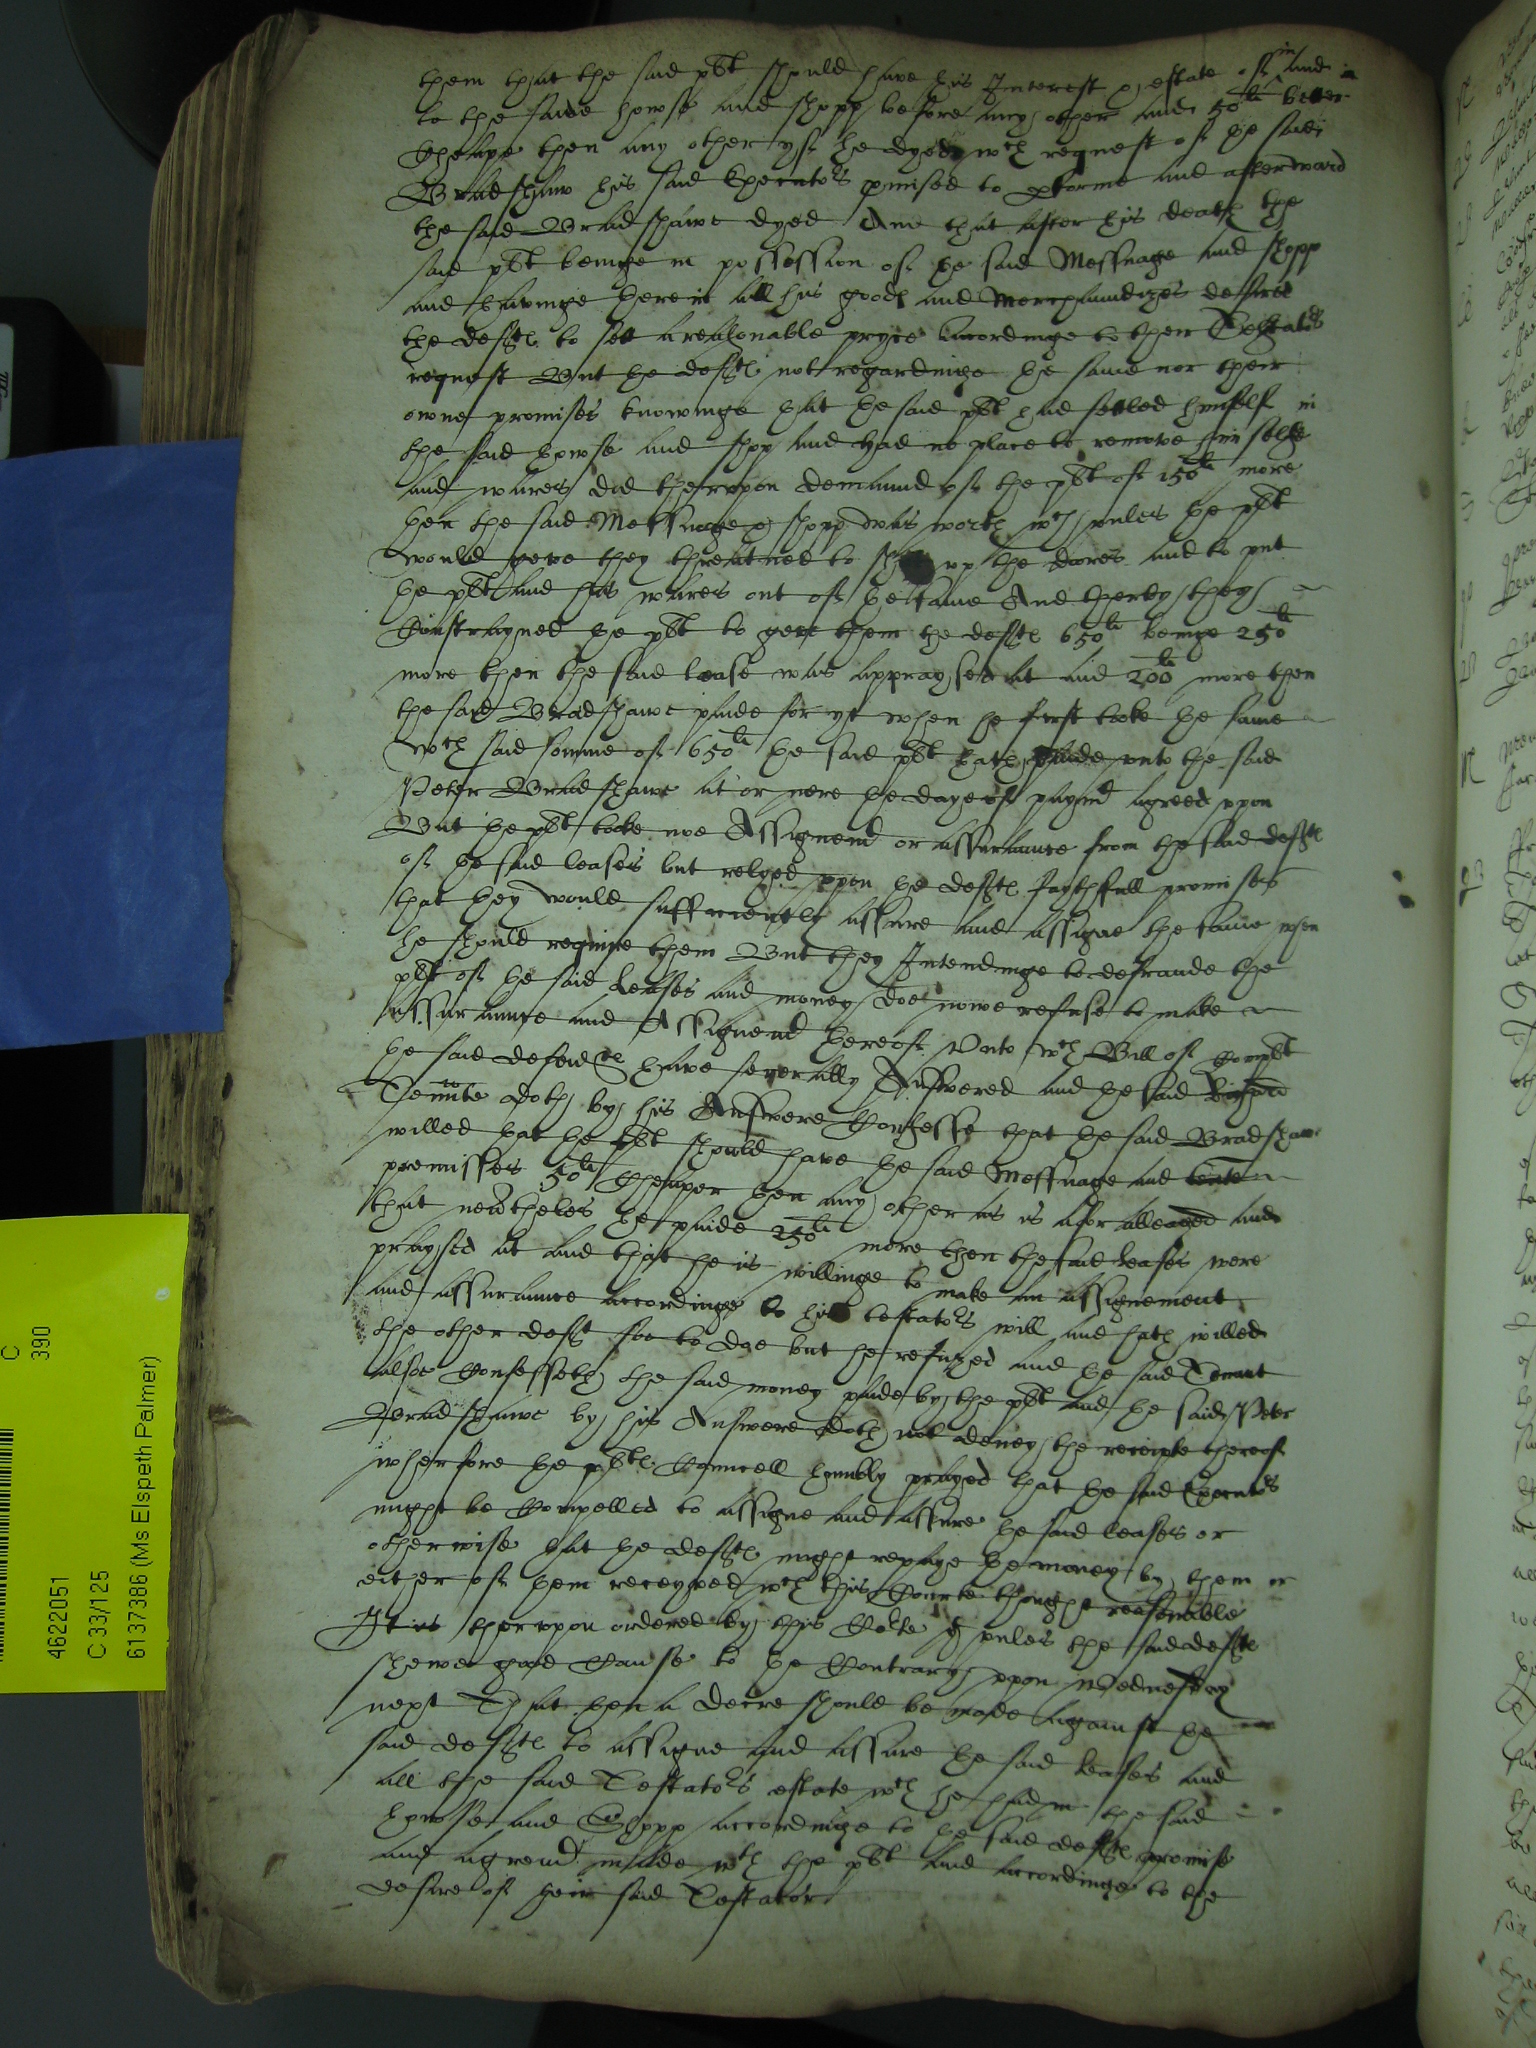 them that the said plt should have his Interest & estate of in and in
to the saide howse and shopp before any other and 50li better
cheape then any other yf he dyed wch request of the said
Bradshaw his said Executors pmised to pforme and afterward
the said Bradshawe dyed And that after his death the
said plt beinge in possession of the said Messuage and shopp
and havinge therein all his goods and Merchaundizes desired
the defts to sett a reasonable pryce accordinge to their Testators
request But the defts not regardinge the same nor their
owne promises knowinge that the said plt had setled himself in
the said howse and shopp and had no place to remove him selfe
and wares did therevpon demaund of the plt of 150li more
then the said Messuage & shopp was worth wch vnles the plt
would geve they threatned to vp the dores and to put
the plt and his wares out of the same And therby they
Constrayned the plt to geve them the defts 650li beinge 250li
more then the said lease was appraysed at and 200li more then
the said Bradshawe paide for yt when he first tooke the same
wch said somme of 650li the said plt hath paide vnto the said
Peter Bradshawe at or nere the dayes of paymt agreed vpon
But the plt tooke noe Assignemt or assuraunce from the said defts
of the said leases but relyed vpon the defts faythfull promises
that they would sufficiently assure and assigne the same when
he should require them But they Intendinge to defraude the
plt of the said leases and money doe nowe refuse to make
assuraunce and Assignemt thereof Vnto wch Bill of Complt
the said defendts have severally Answered and the said
Tennte doth by his Answere Confesse that the said Bradshawe
willed that the plt should have the said Messuage and
premisses 50li cheaper then any other as is afor alleaged and
that nevertheles he paide 250li more then the said leases were
praysed at and that he is willinge to make an assignement
and assuraunce accordinge to his testators will and hath willed
the other deft soe to doe but he refuzed and the said Tennant
alsoe Confesseth the said money paide by the plt and the said Peter
Bradshawe by his Answere doth not deney the receipte thereof
wherfore the plts Councell humbly prayed that the said Executors
might be Compelled to assigne and assure the said leases or
otherwise that the defts might repaye the money by them or
either of them receyved wch this Courte thought reasonable
It is thervpon ordered by this Courte yf vnles the said defts
shewe good Cause to the Contrary vpon Wednesday
next That then a decree should be made against the
said defts to assigne and assure the said leases and
all the said Testators estate wch he had in the said
howse and Shopp accordinge to the said defts promise
and agreemt made wth the plt and accordinge to the
desire of their said Testator
C
390
4622051
C 33/125
6137386 (Ms Elspeth Palmer)